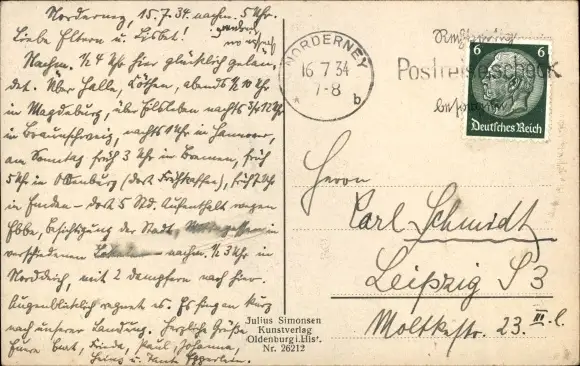 Norderney, 15.7.34. nachm. 5 Uhr.
Liebe Eltern u. Lisbet!
Nachm. 1/4 4 Uhr hier glücklich gelan-
det. Über Halle, Cöthen, abends 1/2 10 Uhr
in Magdeburg, über Eilsleben nachts 3/4 12 Uhr
in Braunschweig, nachts 1 Uhr in Hannover,
am Sonntag früh 3 Uhr in Bremen, früh
5 Uhr in Oldenburg (dort Frühkaffee), früh 7 Uhr
in Emden - dort 5 Std. Aufenthalt wegen
Ebbe, Besichtigung der Stadt, in
verschiedenen Lokalen - nachm. 1/2 3 Uhr in
Norddeich, mit 2 Dampfern nach hier.
Augenblicklich regnet es. Es fing an kurz
nach unserer Landung. Herzliche Grüße
Eure Frieda, Paul, Johanna,
Heinz u. Tante
NORDERNEY
16.7.34
7-8
* b
Postreisescheck
6 6
Deutsches Reich
Herrn
Karl Schmidt
Leipzig S 3
Moltkestr. 23. III. l.
Julius Simonsen
Kunstverlag
Oldenburg i. Hlst.
Nr. 26212